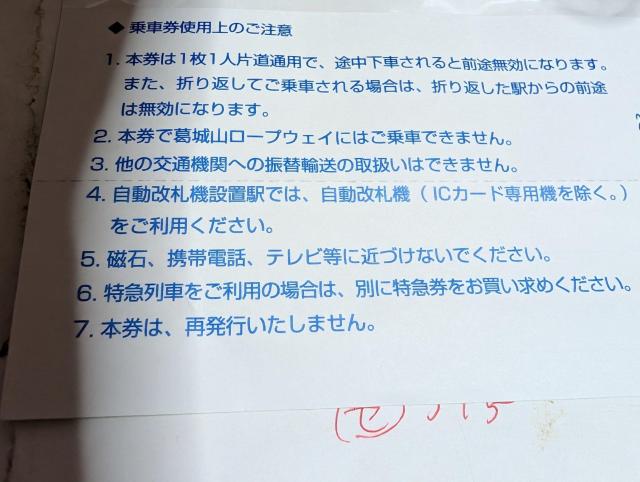 ◆ 乗車券使用上のご注意
1. 本券は1枚1人片道通用で、途中下車されると前途無効になります。
また、折り返してご乗車される場合は、折り返した駅からの前途
は無効になります。
2. 本券で葛城山ロープウェイにはご乗車できません。
3. 他の交通機関への振替輸送の取扱いはできません。
4. 自動改札機設置駅では、自動改札機（ICカード専用機を除く。）
をご利用ください。
5. 磁石、携帯電話、テレビ等に近づけないでください。
6. 特急列車をご利用の場合は、別に特急券をお買い求めください。
7. 本券は、再発行いたしません。